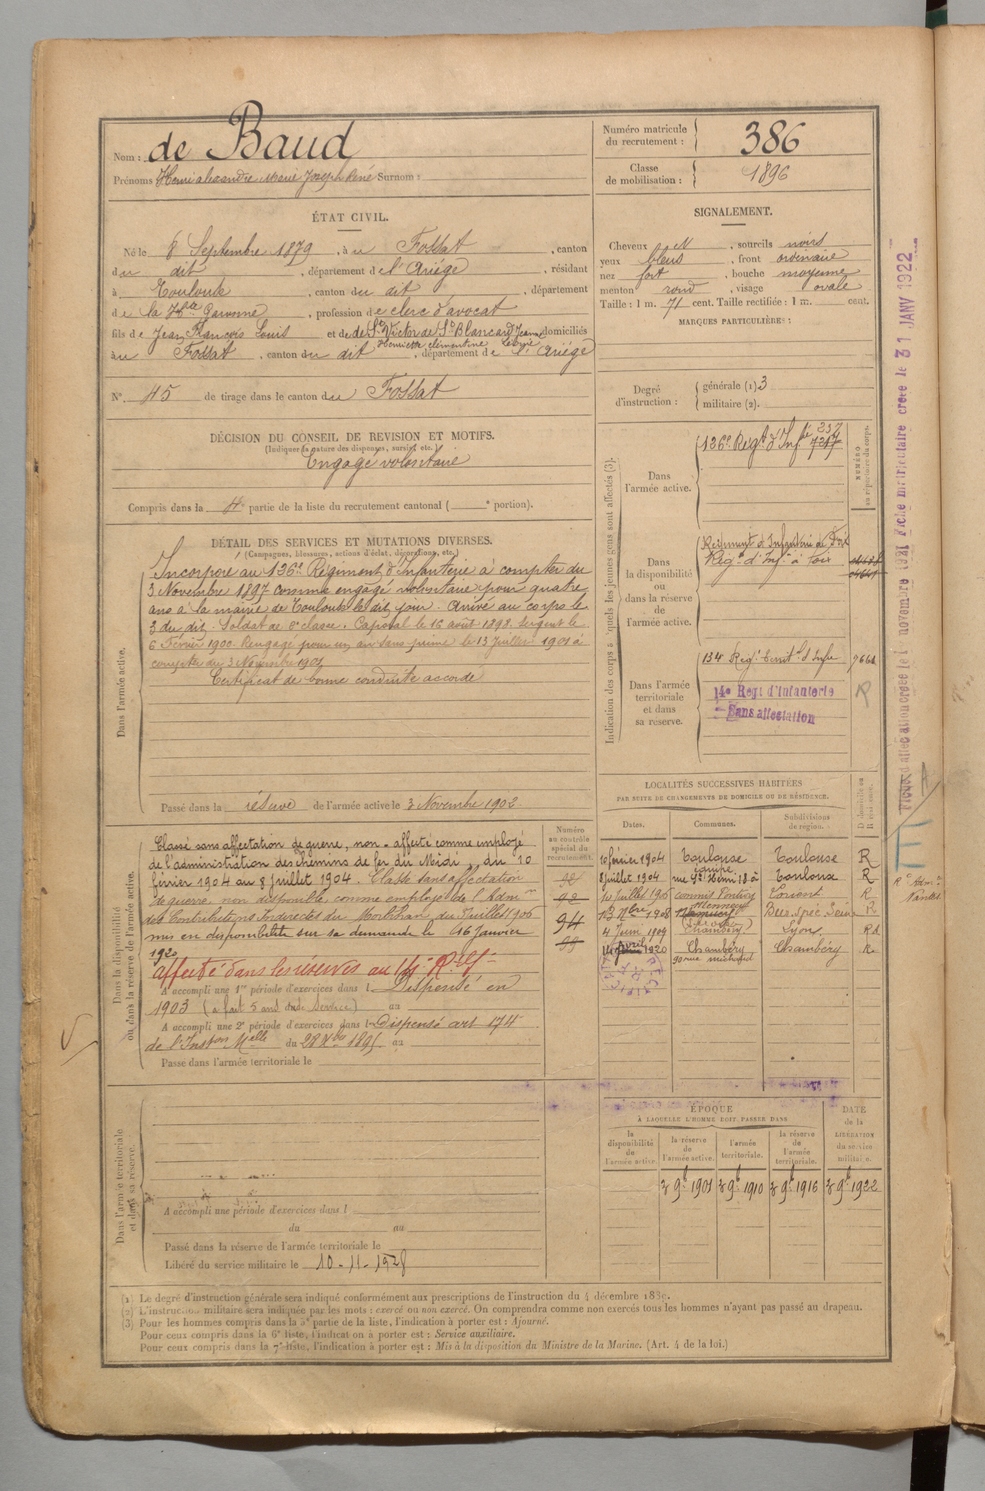 Nom : de Baud
Prénoms Henri Alexandre Marie Joseph René Surnom :
Numéro matricule du recrutement : 386
Classe de mobilisation : 1896
ÉTAT CIVIL.
Né le 8 Septembre 1879, à u Fossat, canton
du dit, département de l'Ariège, résidant
à Toulouse, canton du dit, département
de la Hte Garonne, profession de clerc d'avocat
fils de Jean François Louis et de de St Victor de St Blancard Jeanne
Henriette Clémentine domiciliés
au Fossat, canton du dit, département de l'Ariège
N° 45 de tirage dans le canton du Fossat
SIGNALEMENT.
Cheveux N, sourcils noirs
yeux bleus, front ordinaire
nez fort, bouche moyenne
menton rond, visage ovale
Taille : 1 m. 71 cent. Taille rectifiée : 1 m. cent.
MARQUES PARTICULIÈRES :
Degré d'instruction : générale (1) 3
militaire (2).
DÉCISION DU CONSEIL DE REVISION ET MOTIFS.
(Indiquer la nature des dispenses, sursis, etc.)
Engagé volontaire
Compris dans la 4e partie de la liste du recrutement cantonal ( e portion).
DÉTAIL DES SERVICES ET MUTATIONS DIVERSES.
(Campagnes, blessures, actions d'éclat, décorations, etc.)
Dans l'armée active.
Incorporé au 136e Régiment d'Infanterie à compter du
3 Novembre 1897 comme engagé volontaire pour quatre
ans à la mairie de Toulouse le dit jour. Arrivé au corps le
3 du dit. Soldat de 2e classe. Caporal le 16 août 1898. Sergent le
6 Février 1900. Rengagé pour un an sans prime le 13 Juillet 1901 à
compter du 3 Novembre 1901
Certificat de bonne conduite accordé
Passé dans la réserve de l'armée active le 3 Novembre 1902
Indication des corps auxquels les jeunes gens sont affectés (3).
NUMÉRO au répertoire du corps.
Dans l'armée active.
136e Regt d'Infie 237
7217
Dans la disponibilité ou dans la réserve de l'armée active.
Régiment d'Infanterie de Foix
Régt d'Inf. à Foix
Dans l'armée territoriale et dans sa réserve.
134 Régt territ. d'Infie 9661
14e Regt d'Infanterie
Sans affectation
LOCALITÉS SUCCESSIVES HABITÉES
PAR SUITE DE CHANGEMENTS DE DOMICILE OU DE RÉSIDENCE.
Dates. Communes. Subdivisions de région. D domicile ou R résidence.
10 février 1904 Toulouse Toulouse R
8 juillet 1904 Toulouse R
10 juillet 1906 commis Pontivy Lorient R
1908 R
4 Juin 1909 Chambéry Lyon Rd
14 avril 1920 Chambéry Chambéry R.
Dans la disponibilité ou dans la réserve de l'armée active.
Numéro au contrôle spécial du recrutement.
94
Classé sans affectation de guerre, non-affecté comme employé
de l'administration des chemins de fer du Midi, du 10
février 1904 au 8 juillet 1904. Classé sans affectation
de guerre, non disponible, comme employé de l'Admon
des Contributions Indirectes du Morbihan, du juillet 1906
mis en disponibilité sur sa demande le 16 Janvier
1920
Affecté dans les réserves au 14e R.
A accompli une 1re période d'exercices dans l Dispensé en
1903 (a fait 5 ans de service) au
A accompli une 2e période d'exercices dans l Dispensé art. 174
de l'Inston Melle du 28 Xbre 1895 au
Passé dans l'armée territoriale le
Dans l'armée territoriale et dans sa réserve.
A accompli une période d'exercices dans l
du au
Passé dans la réserve de l'armée territoriale le
Libéré du service militaire le 10-11-1928
ÉPOQUE
À LAQUELLE L'HOMME DOIT PASSER DANS
la disponibilité de l'armée active. la réserve de l'armée active. l'armée territoriale. la réserve de l'armée territoriale.
DATE de la LIBÉRATION du service militaire.
3 9b 1901 3 9b 1910 3 9b 1916 3 9b 1922
(1) Le degré d'instruction générale sera indiqué conformément aux prescriptions de l'instruction du 4 décembre 1889.
(2) L'instruction militaire sera indiquée par les mots : exercé ou non exercé. On comprendra comme non exercés tous les hommes n'ayant pas passé au drapeau.
(3) Pour les hommes compris dans la 5e partie de la liste, l'indication à porter est : Ajourné.
Pour ceux compris dans la 6e liste, l'indication à porter est : Service auxiliaire.
Pour ceux compris dans la 7e liste, l'indication à porter est : Mis à la disposition du Ministre de la Marine. (Art. 4 de la loi.)
Fiche d'affectation créée le 1 novembre 1921 Fiche matriculaire créée le 31 JANV 1922